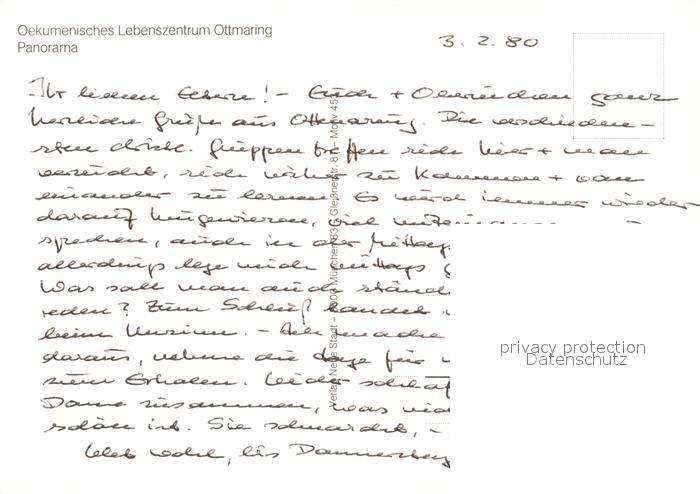 Oekumenisches Lebenszentrum Ottmaring
Panorama
3. 2. 80
Ihr lieben Eltern! – Euch + Oberinchen ganz
herzliche Grüße aus Ottmaring. Die verschieden-
sten christl. Gruppen treffen sich hier + man
versucht, sich näher zu kommen + von
einander zu lernen. Es wird immer wieder
darauf hingewiesen, viel
sprechen, auch in der Mittags
allerdings lege mich mittags
Was soll man auch ständ
reden? Zum Schluß landet
beim Unsinn. – Ich mache
daraus, nehme die Tage für
zum Erholen. Leider schlaf
Dame zusammen, was nich
schön ist. Sie schnarcht, –
Lebt wohl, bis Donnerstag
Verlag Neue Stadt –
privacy protection
Datenschutz